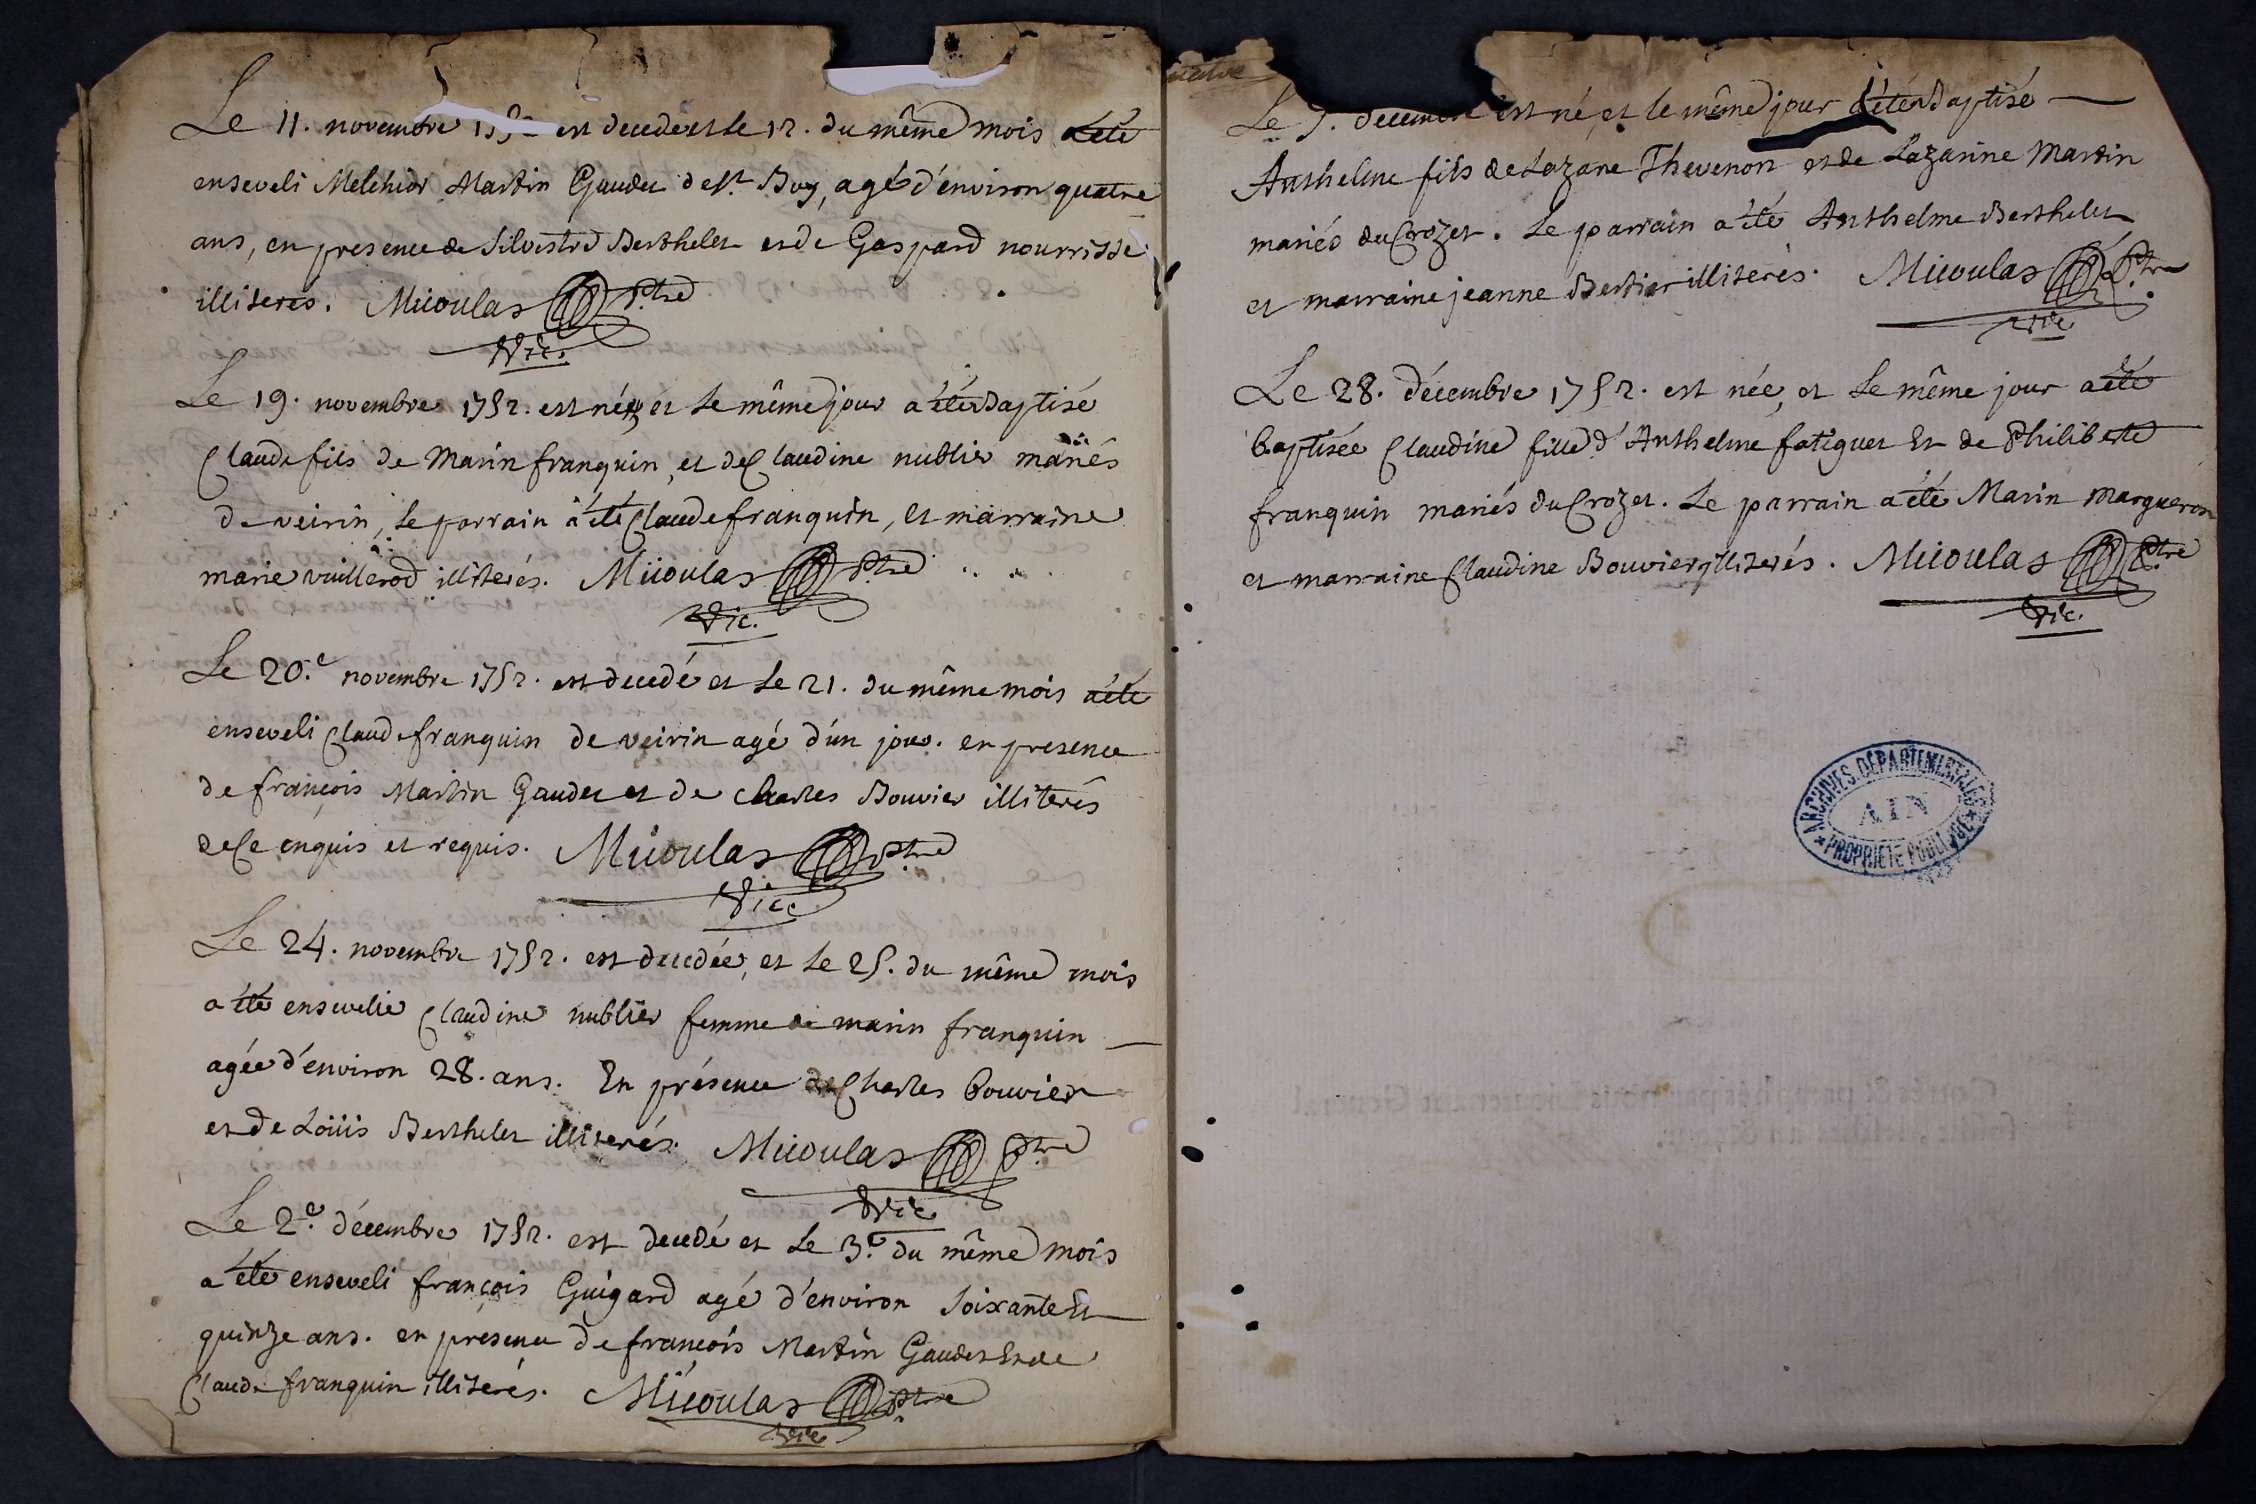 Le 11. novembre 1752 est decedé et le 12. du même mois a été
enseveli Melchior Martin Gaudet de St. Boy, agé d'environ quatre
ans, en presence de Silvestre Berthelet et de Gaspard nourrisse
illiterés. Micoulas Ptre
Vic.
Le 19. novembre 1752. est né, et le même jour a été Baptisé
Claude fils de Marin franquin, et de Claudine nublier mariés
de veirin, le parrain a été Claude franquin, et marraine
marie vuillerod illiterés. Micoulas Ptre
Vic.
Le 20.e novembre 1752. est decedé et le 21. du même mois a été
enseveli Claude franquin de veirin agé d'un jour. en presence
de françois Martin Gaudet et de charles Bouvier illiterés
de ce enquis et requis. Micoulas Ptre
Vic.
Le 24. novembre 1752. est decedée, et le 25. du même mois
a été ensevelie Claudine nublier femme de marin franquin
agée d'environ 28. ans. En présence de Charles bouvier
et de Loüis Berthelet illiterés. Micoulas Ptre
Vic.
Le 2.e décembre 1752. est decedé et le 3.e du même mois
a été enseveli françois Guigard agé d'environ soixante Et
quinze ans. en presence de françois Martin Gaudet Et de
Claude franquin illiterés. Micoulas Ptre
Vic.
Le decembre est né, et le même jour a été Baptisé
Anthelme fils de Lazare Thevenon et de Lazarine Martin
mariés du Crozet. Le parrain a été Anthelme Berthelet
et marraine jeanne Bertier illiterés. Micoulas Ptre
Vic.
Le 28. décembre 1752. est née, et le même jour a été
baptisée Claudine fille d'Anthelme fatiguet Et de Philiberte
franquin mariés du Crozet. Le parrain a été Marin Margueron
et marraine Claudine Bouvier illiterés. Micoulas Ptre
Vic.
ARCHIVES DÉPARTEMENTALES
AIN
PROPRIÉTÉ PUBLIQUE